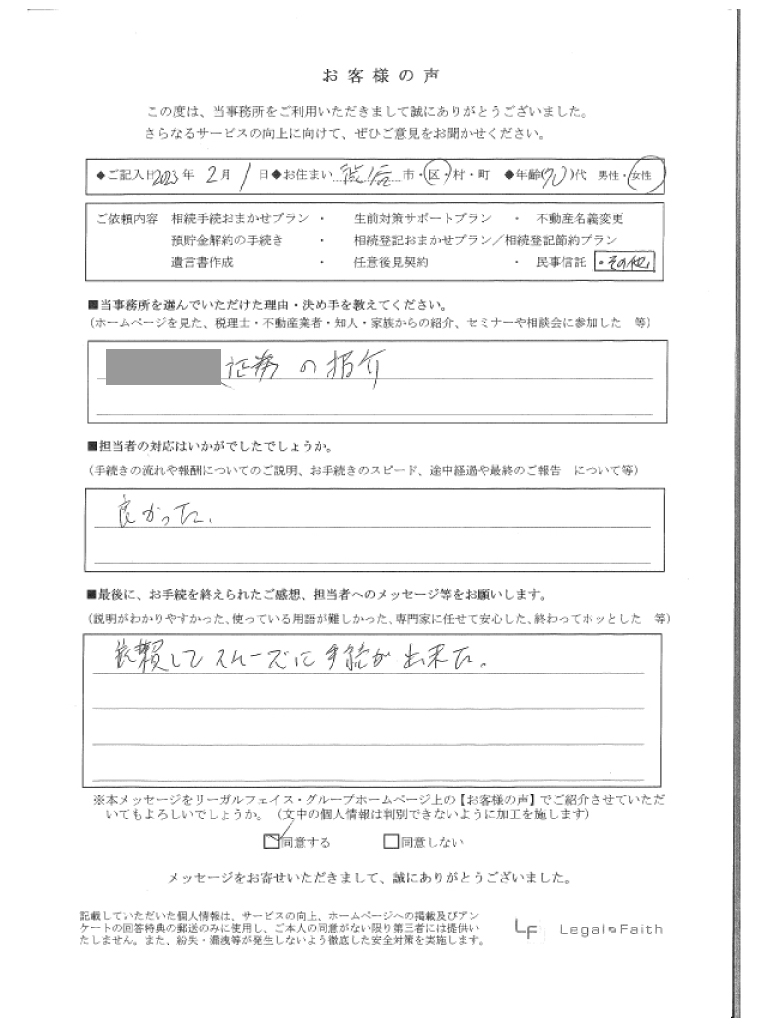 お客様の声
この度は、当事務所をご利用いただきまして誠にありがとうございました。
さらなるサービスの向上に向けて、ぜひご意見をお聞かせください。
◆ご記入日 2023年 2月 1日◆お住まい 渋谷 市・区・村・町 ◆年齢(70)代 男性・女性
ご依頼内容 相続手続おまかせプラン ・ 生前対策サポートプラン ・ 不動産名義変更
預貯金解約の手続き ・ 相続登記おまかせプラン／相続登記節約プラン
遺言書作成 ・ 任意後見契約 ・ 民事信託 ・その他
■当事務所を選んでいただけた理由・決め手を教えてください。
(ホームページを見た、税理士・不動産業者・知人・家族からの紹介、セミナーや相談会に参加した 等)
の紹介
■担当者の対応はいかがでしたでしょうか。
(手続きの流れや報酬についてのご説明、お手続きのスピード、途中経過や最終のご報告 について等)
良かった.
■最後に、お手続を終えられたご感想、担当者へのメッセージ等をお願いします。
(説明がわかりやすかった、使っている用語が難しかった、専門家に任せて安心した、終わってホッとした 等)
依頼してスムーズに手続が出来た。
※本メッセージをリーガルフェイス・グループホームページ上の【お客様の声】でご紹介させていただ
いてもよろしいでしょうか。（文中の個人情報は判別できないように加工を施します）
同意する 同意しない
メッセージをお寄せいただきまして、誠にありがとうございました。
記載していただいた個人情報は、サービスの向上、ホームページへの掲載及びアン
ケートの回答特典の郵送のみに使用し、ご本人の同意がない限り第三者には提供い
たしません。また、紛失・漏洩等が発生しないよう徹底した安全対策を実施します。
LF Legal Faith